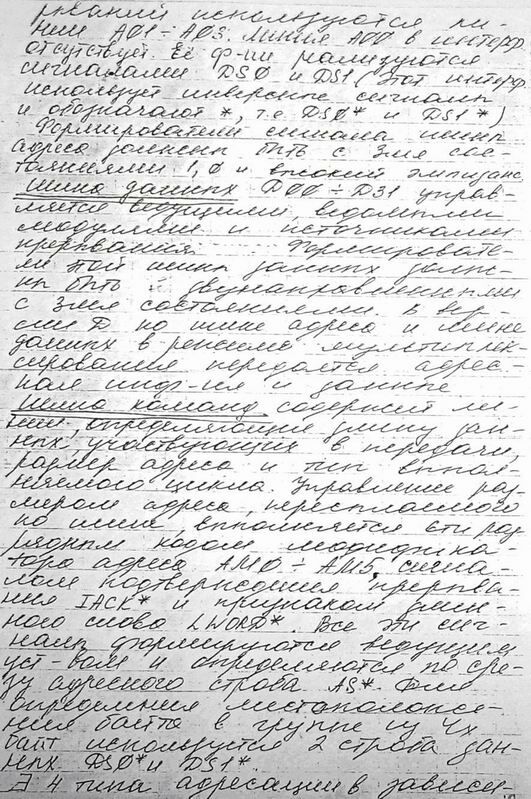 рований используются ли-
нии A01÷A03. Линия A00 в интерф
отсутствует. Её ф-ии реализуются
сигналами DS0 и DS1 (этот интерф.
использует инверсные сигналы
и обозначают *, т.е. DS0* и DS1*)
Формирователи сигнала шины
адреса должны быть с 3мя сос-
тояниями 1, 0 и высокий импеданс
Шина данных D00÷D31 управ-
ляется ведущими, ведомыми
модулями и источниками
прерывания. Формировате-
ли той шины данных долж-
ны быть двунаправленными
с 3мя состояниями. В вер-
сии D по шине адреса и шине
данных в режиме мультиплек-
сирования передаётся адрес-
ная инф-ия и данные
Шина команд содержит ли-
нии, определяющие длину дан-
ных, участвующих в передачи,
размер адреса и тип выпол-
няемого цикла. Управление раз-
мером адреса, пересылаемого
по шине, выполняется 6ти раз-
рядным кодом модифика-
тора адреса AM0÷AM5, сигна-
лом подтверждения прерыва-
ния IACK* и признаком длин-
ного слова LWORD*. Все эти сиг-
налы формируются ведущим
уст-вом и определяются по сре-
зу адресного строба AS*. Для
определения местоположе-
ния байта в группе из 4х
байт используется 2 строба дан-
ных DS0* и DS1*.
∃ 4 типа адресации в зависи-